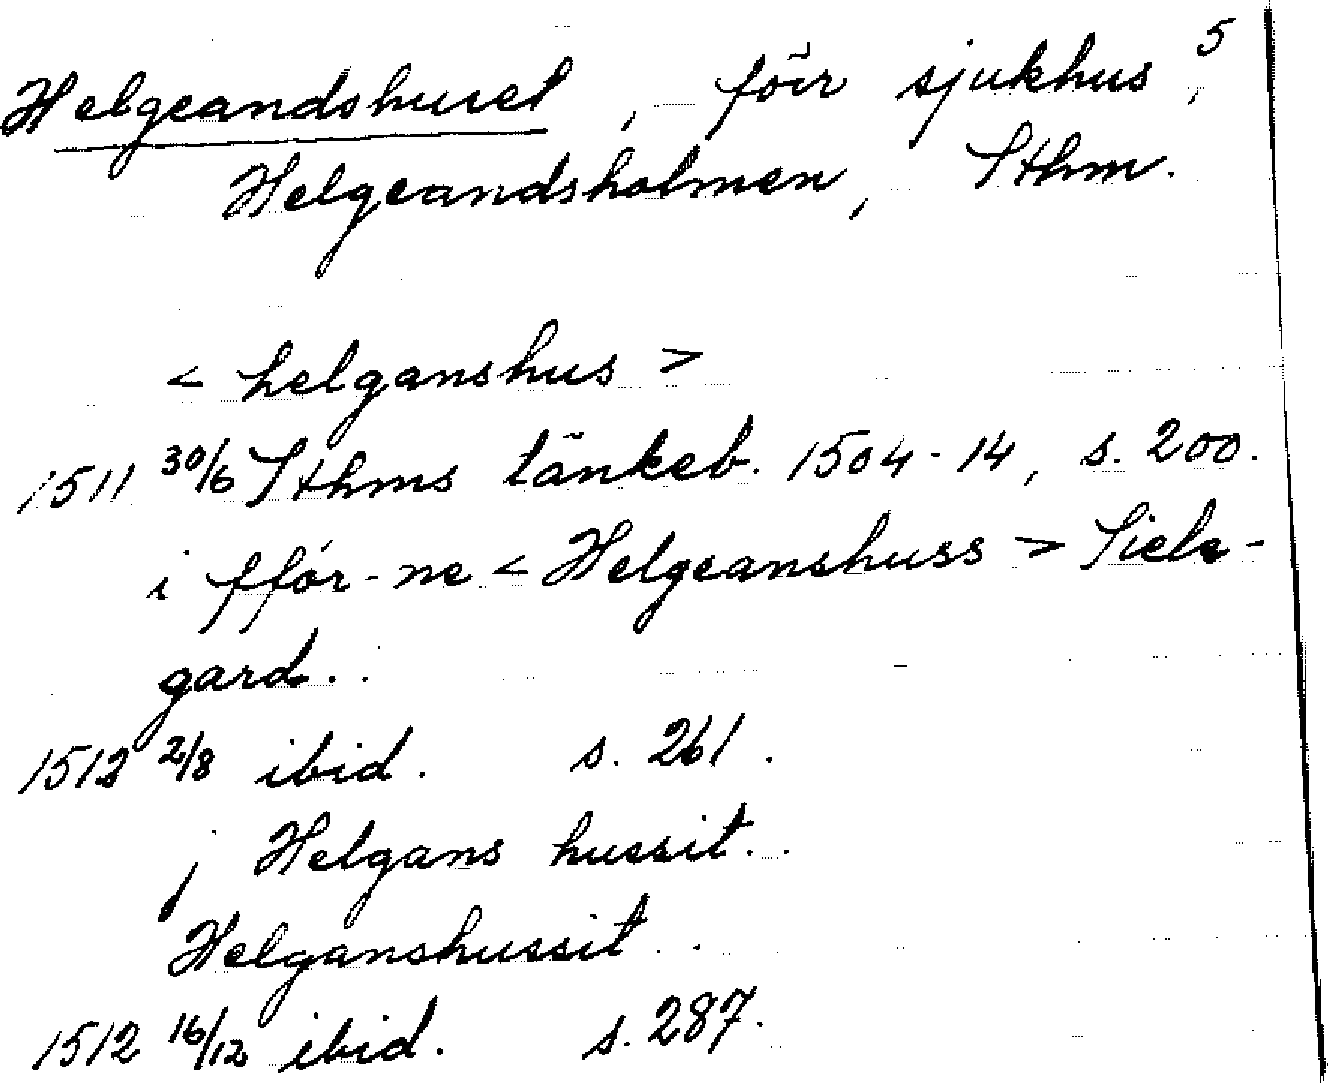 5
Helgeandshuset, förr sjukhus,
Helgeandsholmen, Sthm.
< helganshus >
1511 30/6 Sthms tänkeb. 1504-14, s. 200.
i fför-ne < Helgeanshuss > Siele-
gard..
1512 2/8 ibid. s. 261.
j Helgans hussit..
Helganshussit..
1512 16/12 ibid. s. 287.